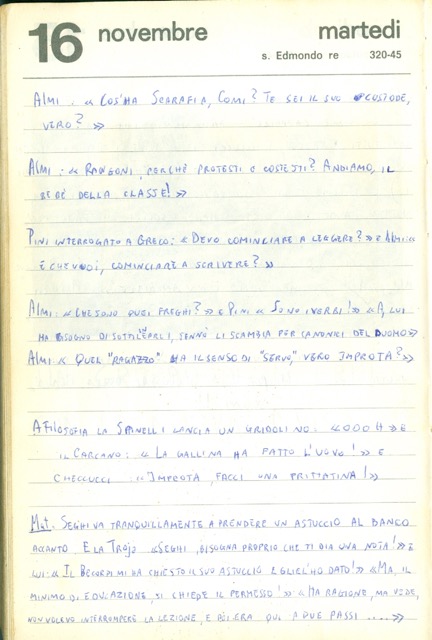 16 novembre martedi
s. Edmondo re 320-45
ALMI: « COS'HA SCARAFIA, COMI? TE SEI IL SUO CUSTODE,
VERO? »
ALMI: « RANGONI, PERCHÈ PROTESTI E CONTESTI? ANDIAMO, IL
BEBÈ DELLA CLASSE! »
PINI INTERROGATO A GRECO: « DEVO COMINCIARE A LEGGERE? » E ALMI: «
E CHE VUOI, COMINCIARE A SCRIVERE? »
ALMI: « CHE SONO QUEI FREGHI? » E PINI « SONO I VERBI! » « A, LUI
HA BISOGNO DI SOTTOLINEARLI, SENNÒ LI SCAMBIA PER CANONICI DEL DUOMO »
ALMI: « QUEL "RAGAZZO" HA IL SENSO DI "SERVO", VERO IMPROTA? »
A FILOSOFIA LA SPINELLI LANCIA UN GRIDOLINO: « OOOH » E
IL CARCANO: « LA GALLINA HA FATTO L'UOVO! » E
CHECCUCCI: « IMPROTA, FACCI UNA FRITTATINA! »
MAT. SEGHI VA TRANQUILLAMENTE A PRENDERE UN ASTUCCIO AL BANCO
ACCANTO. E LA TROJO «SEGHI, BISOGNA PROPRIO CHE TI DIA UNA NOTA! » E
LUI: « IL BECORPI MI HA CHIESTO IL SUO ASTUCCIO E GLIEL'HO DATO! » « MA, IL
MINIMO DI EDUCAZIONE, SI CHIEDE IL PERMESSO! » « HA RAGIONE, MA VEDE,
NON VOLEVO INTERROMPERE LA LEZIONE, E POI ERA QUI A DUE PASSI .... »